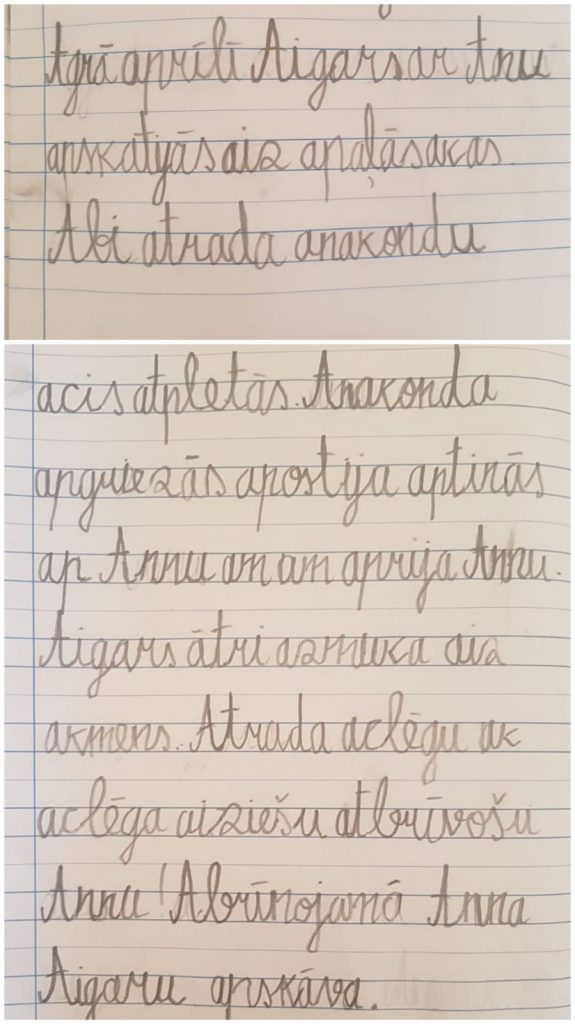 Agrā aprīlī Aigars ar Anu
apskatījās aiz apaļās akas.
Abi atrada anakondu
acis atpletās. Anakonda
apgriezās apostīja aptinās
ap Annu am am aprija Annu.
Aigars ātri aizmuka aiz
akmens. Atrada aclēgu ak
aclēga aiziešu atbrīvošu
Annu! Abrīnojamā Anna
Aigaru apskāva.